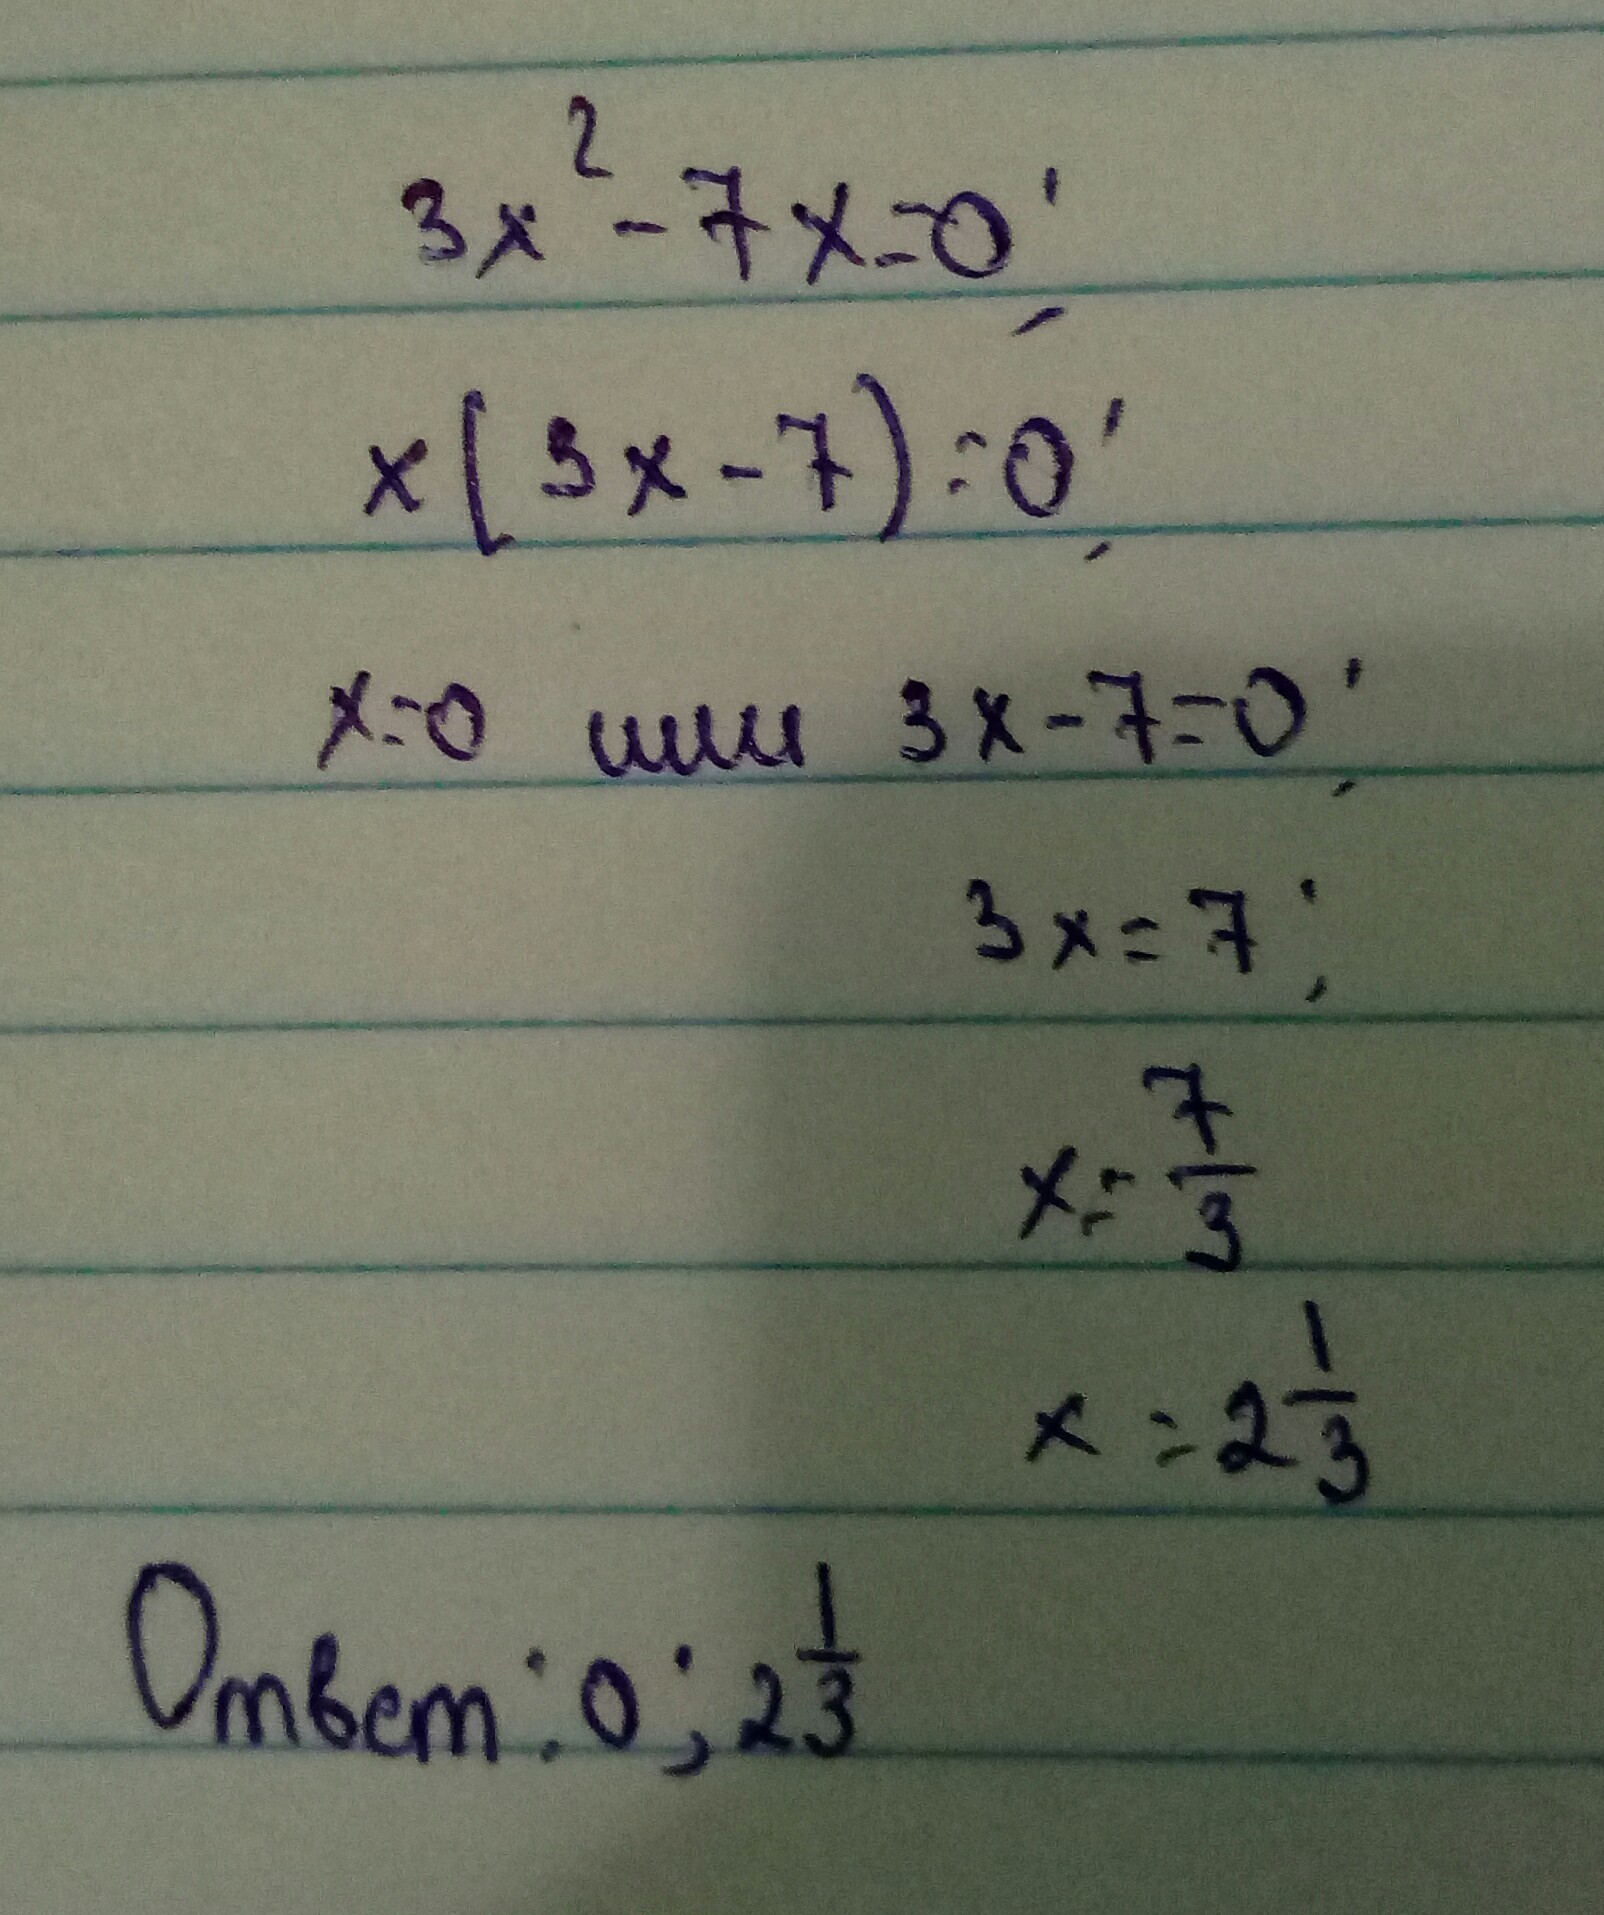 3x² - 7x = 0;
x(3x - 7) = 0;
x = 0 или 3x - 7 = 0;
3x = 7;
x = 7/3
x = 2 1/3
Ответ: 0; 2 1/3